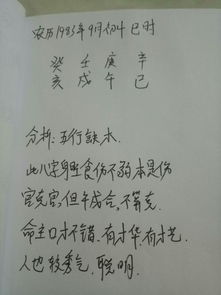 农历1983年9月初4 巳时
癸 壬 庚 辛
亥 戌 午 巳
分析: 五行缺木.
此八字身旺食伤不弱本是伤
官克官,但午戌合,不等克.
命主口才不错.有才华,有才艺.
人也较秀气,聪明.